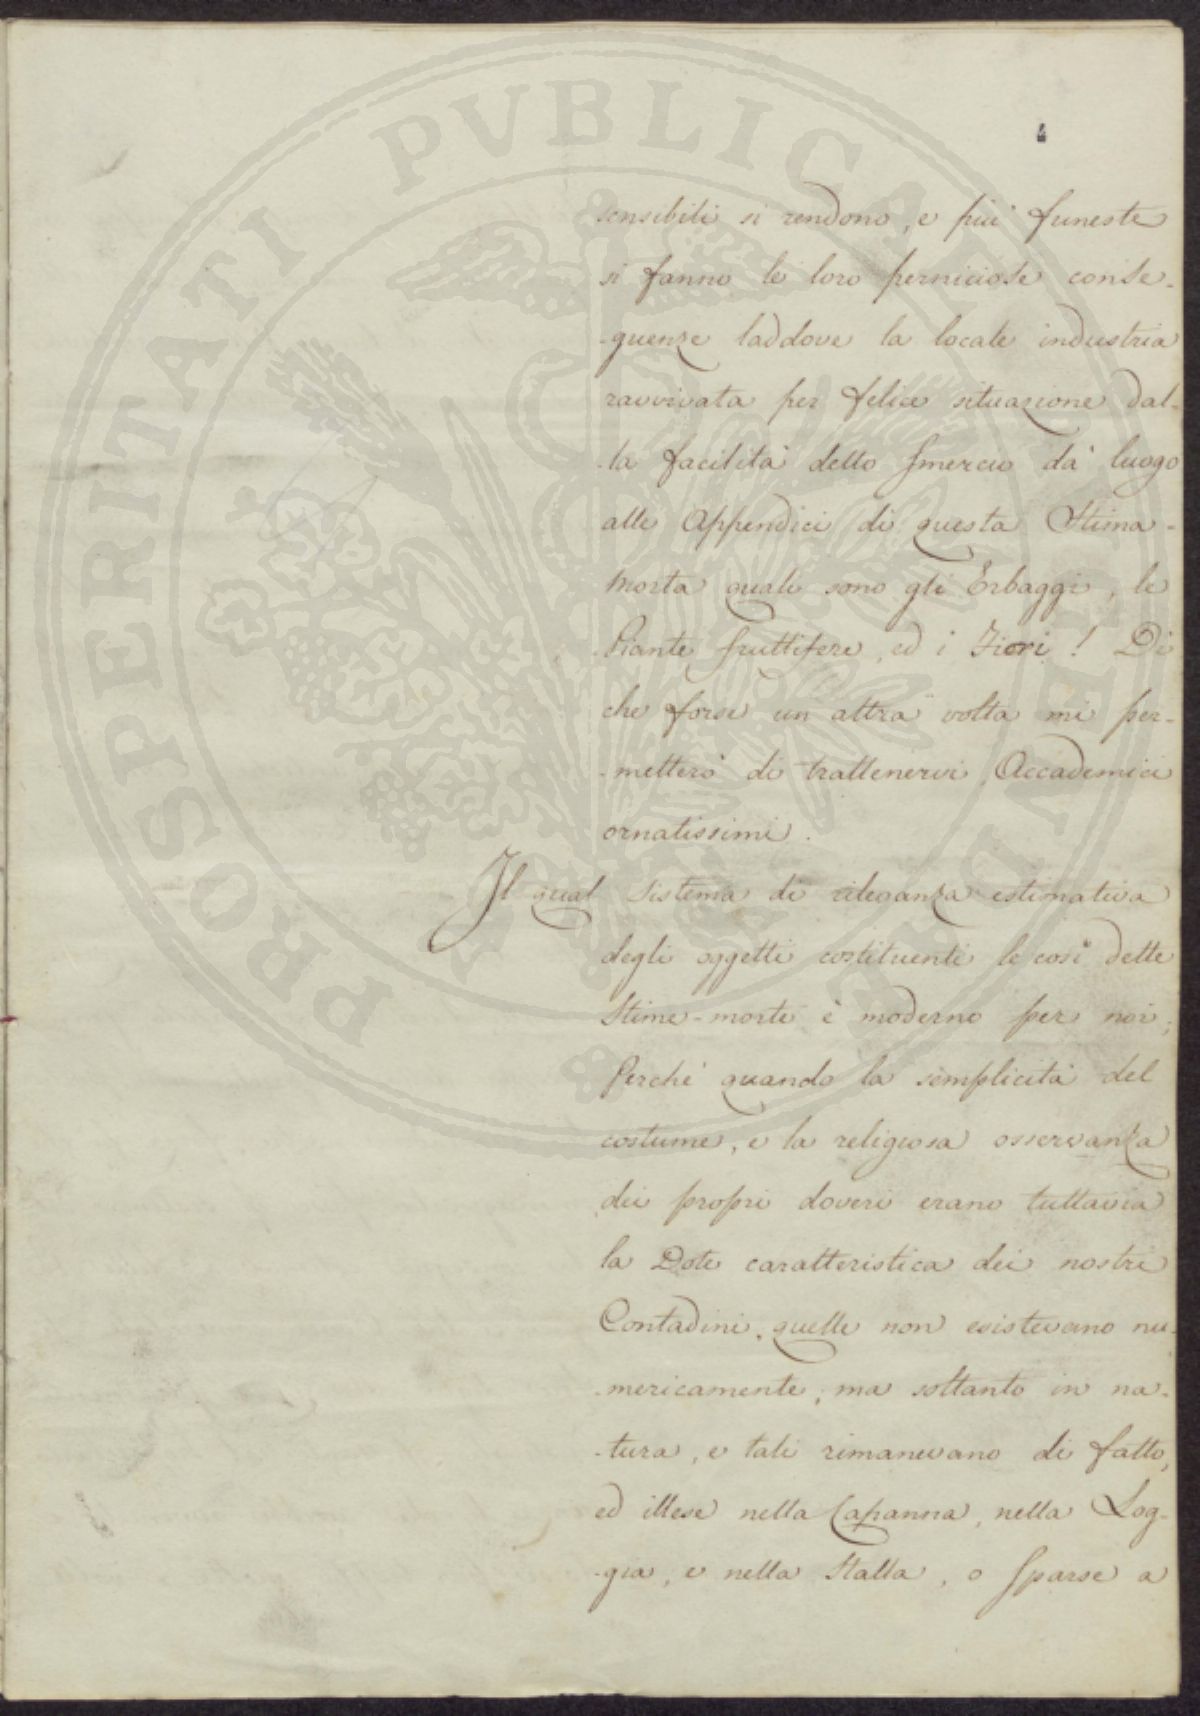 4
sensibili si rendono, e più funeste
si fanno le loro perniciose conse-
-guenze laddove la locale industria
ravvivata per felice situazione dal-
-la facilità dello smercio dà luogo
alle Appendici di questa Stima-
morta quali sono gli Erbaggi, le
Piante fruttifere, ed i Fiori! Di
che forse un altra volta mi per-
-metterò di trattenervi Accademici
ornatissimi.
Il qual sistema di rilevanza estimativa
degli oggetti costituenti le così dette
Stime-morte è moderno per noi;
Perchè quando la semplicità del
costume, e la religiosa osservanza
dei propri doveri erano tuttavia
la Dote caratteristica dei nostri
Contadini, quelle non esistevano nu-
-mericamente, ma soltanto in na-
-tura, e tali rimanevano di fatto,
ed illese nella Capanna, nella Log-
-gia, e nella Stalla, o sparse a
PROSPERITATI PVBLICAE AVGENDAE